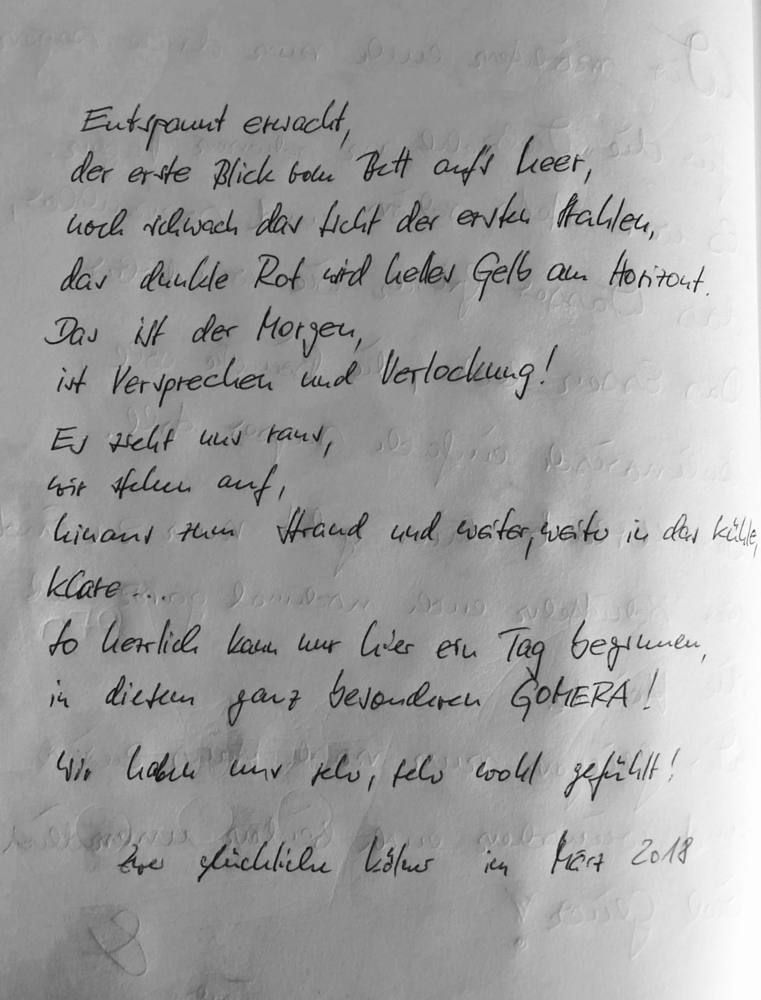 Entspannt erwacht,
der erste Blick vom Bett auf's Meer,
noch schwach das Licht der ersten Strahlen,
das dunkle Rot wird helles Gelb am Horizont.
Das ist der Morgen,
ist Versprechen und Verlockung!
Es zieht uns raus,
wir stehen auf,
hinaus zum Strand und weiter, weiter in das kühle,
klare...
So herrlich kann nur hier ein Tag beginnen,
in diesem ganz besonderen GOMERA!
Wir haben uns sehr, sehr wohl gefühlt!
Zwei glückliche Kölner im März 2018